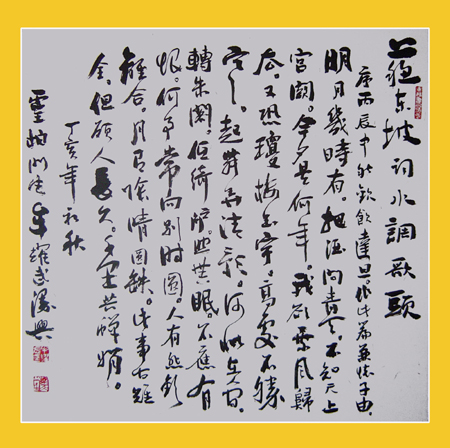 蘇东坡词水調歌頭
序丙辰中秋欢飲達旦。作此篇兼怀子由。
明月幾時有。把酒问青天。不知天上
宫闕。今夕是何年。我欲乘风歸
去。又恐瓊楼玉宇。高处不勝
寒。起舞弄清影。何似在人间。
轉朱閣。低绮户。照無眠。不應有
恨。何事常向别时圆。人有悲欢
離合。月有陰晴圆缺。此事古难
全。但願人長久。千里共嬋娟。
丁亥年初秋